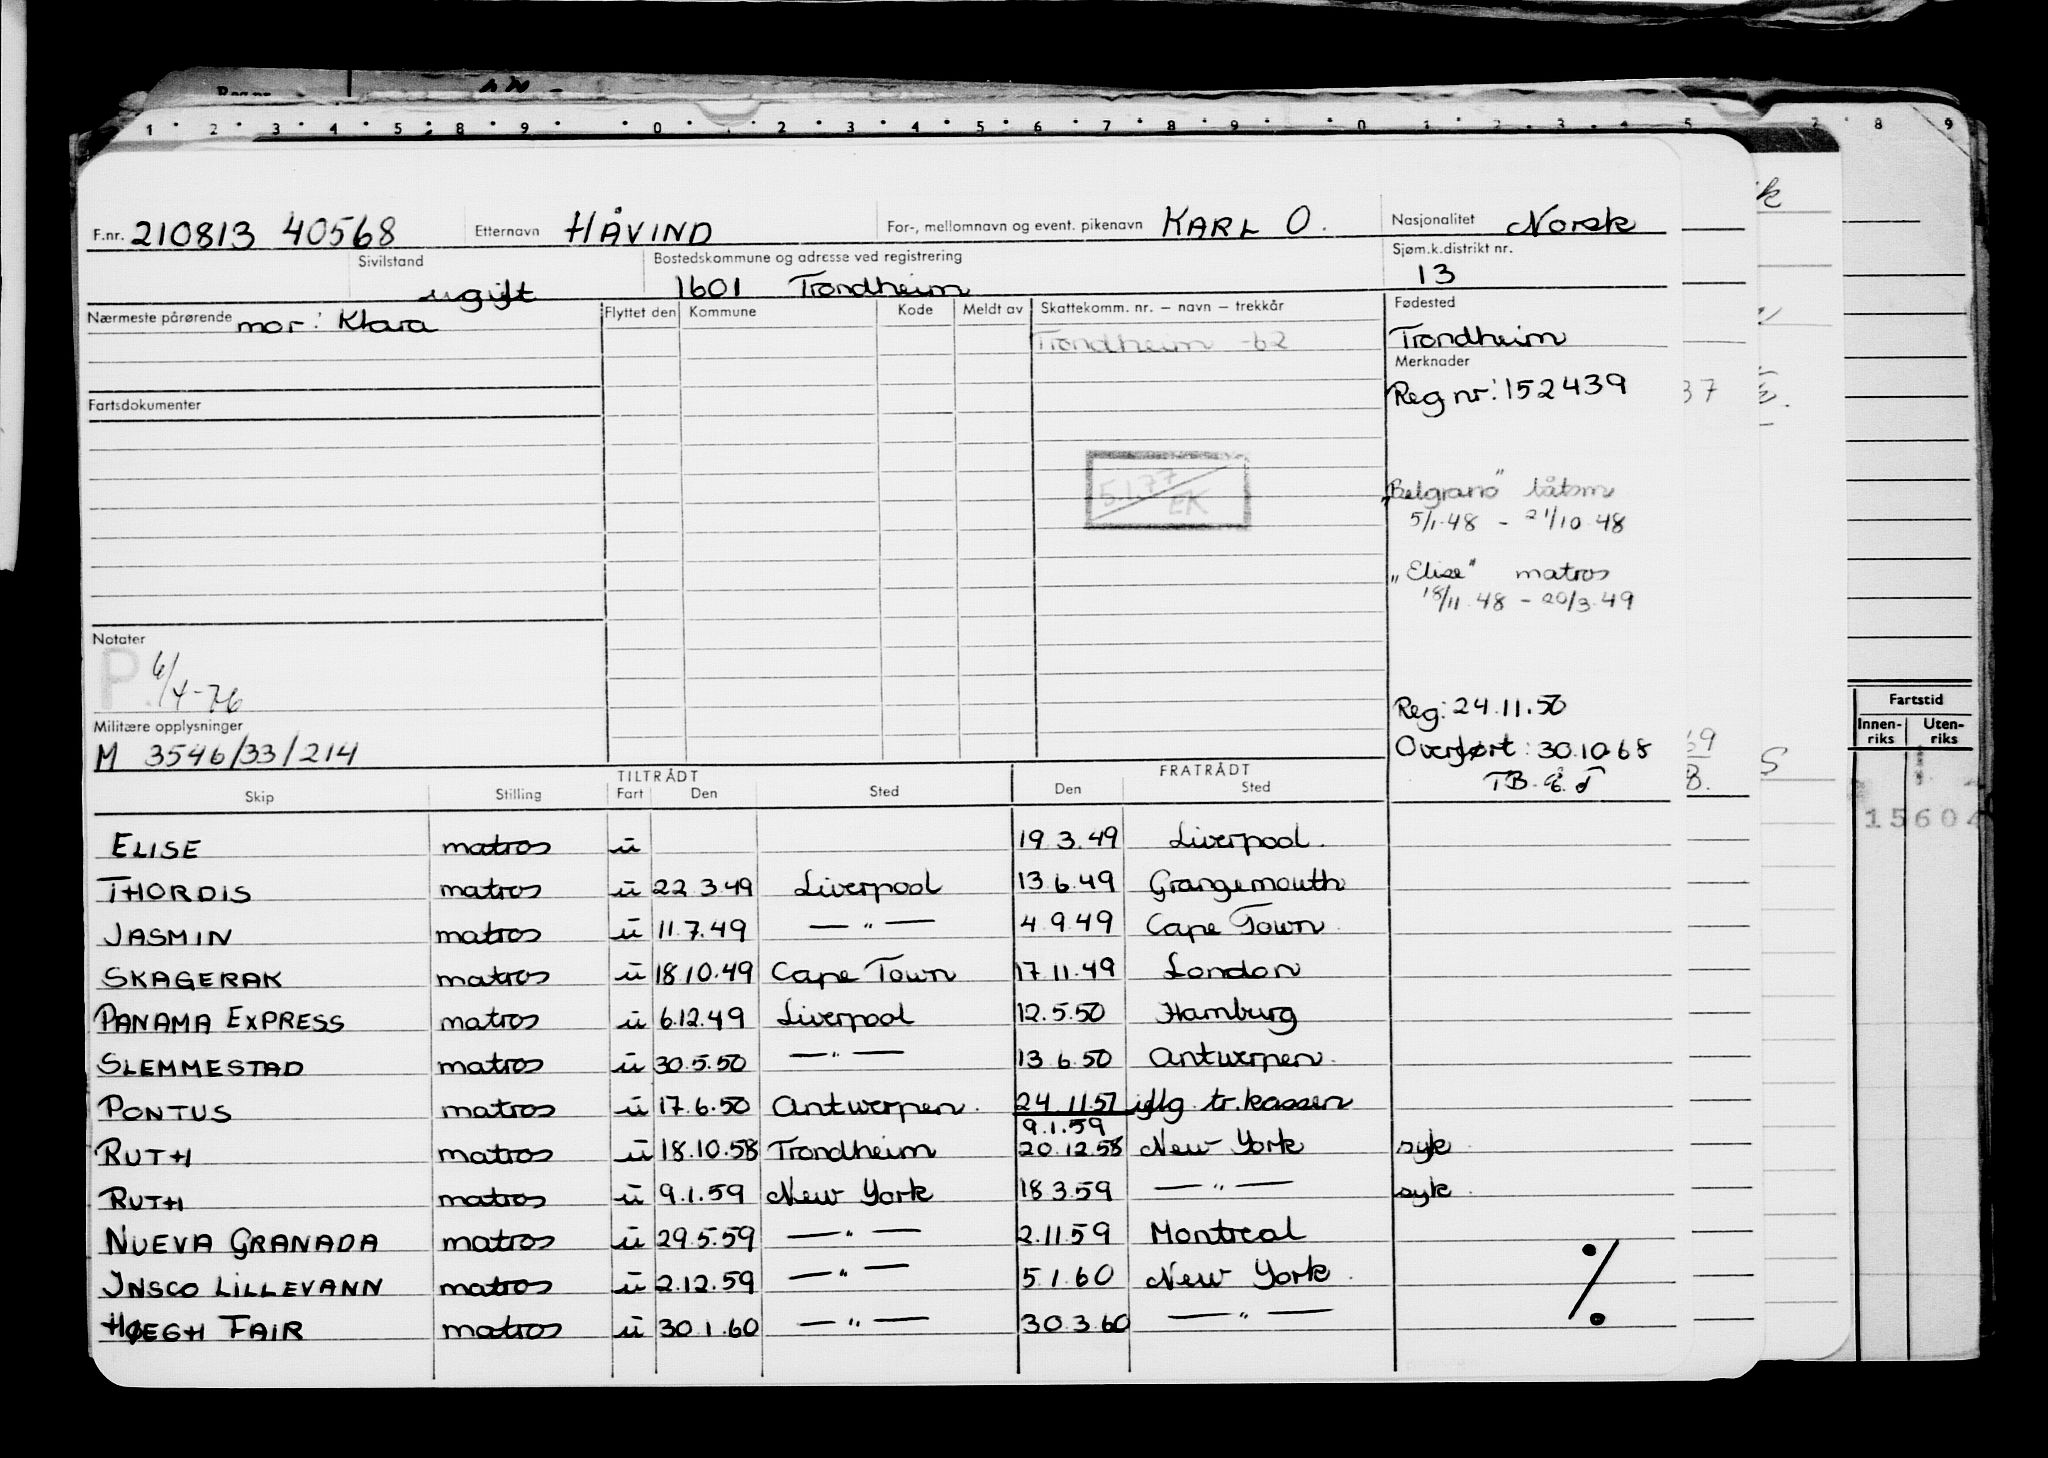 1 2 3 4 5 8 9 0 2 3 4 5 6 7 8 9 0 1 2 3 4 5 7 8 9
F.nr. 210813 40568 Etternavn HÅVIND For-, mellomnavn og event. pikenavn KARL O. Nasjonalitet Norsk
Sivilstand ugift Bostedskommune og adresse ved registrering 1601 Trondheim Sjøm.k.distrikt nr. 13
Nærmeste pårørende mor: Klara Flyttet den Kommune Kode Meldt av Skattekomm. nr. – navn – trekkår Fødested
Trondheim -62 Trondheim
Merknader
Reg nr: 152439
Fartsdokumenter
5.1.77 EK
"Belgrano" låtsm
5/1.48 - 21/10.48
"Elise" matros
18/11.48 - 20/3.49
Notater
P 6/4-76
Reg: 24.11.50
Militære opplysninger
M 3546/33/214
Overført: 30.10.68
Fartstid
Innenriks Utenriks
TILTRÅDT FRATRÅDT
Skip Stilling Fart Den Sted Den Sted
ELISE matros u 19.3.49 Liverpool.
THORDIS matros u 22.3.49 Liverpool 13.6.49 Grangemouth
JASMIN matros u 11.7.49 — " — 4.9.49 Cape Town
SKAGERAK matros u 18.10.49 Cape Town 17.11.49 London
PANAMA EXPRESS matros u 6.12.49 Liverpool 12.5.50 Hamburg
SLEMMESTAD matros u 30.5.50 — " — 13.6.50 Antwerpen.
PONTUS matros u 17.6.50 Antwerpen. 24.11.57 iflg tr.kassen
9.1.59
RUTH matros u 18.10.58 Trondheim 20.12.58 New York syk
RUTH matros u 9.1.59 New York 18.3.59 — " — syk
NUEVA GRANADA matros u 29.5.59 — " — 2.11.59 Montreal
INSCO LILLEVANN matros u 2.12.59 — " — 5.1.60 New York.
HØEGH FAIR matros u 30.1.60 — " — 30.3.60 — " —